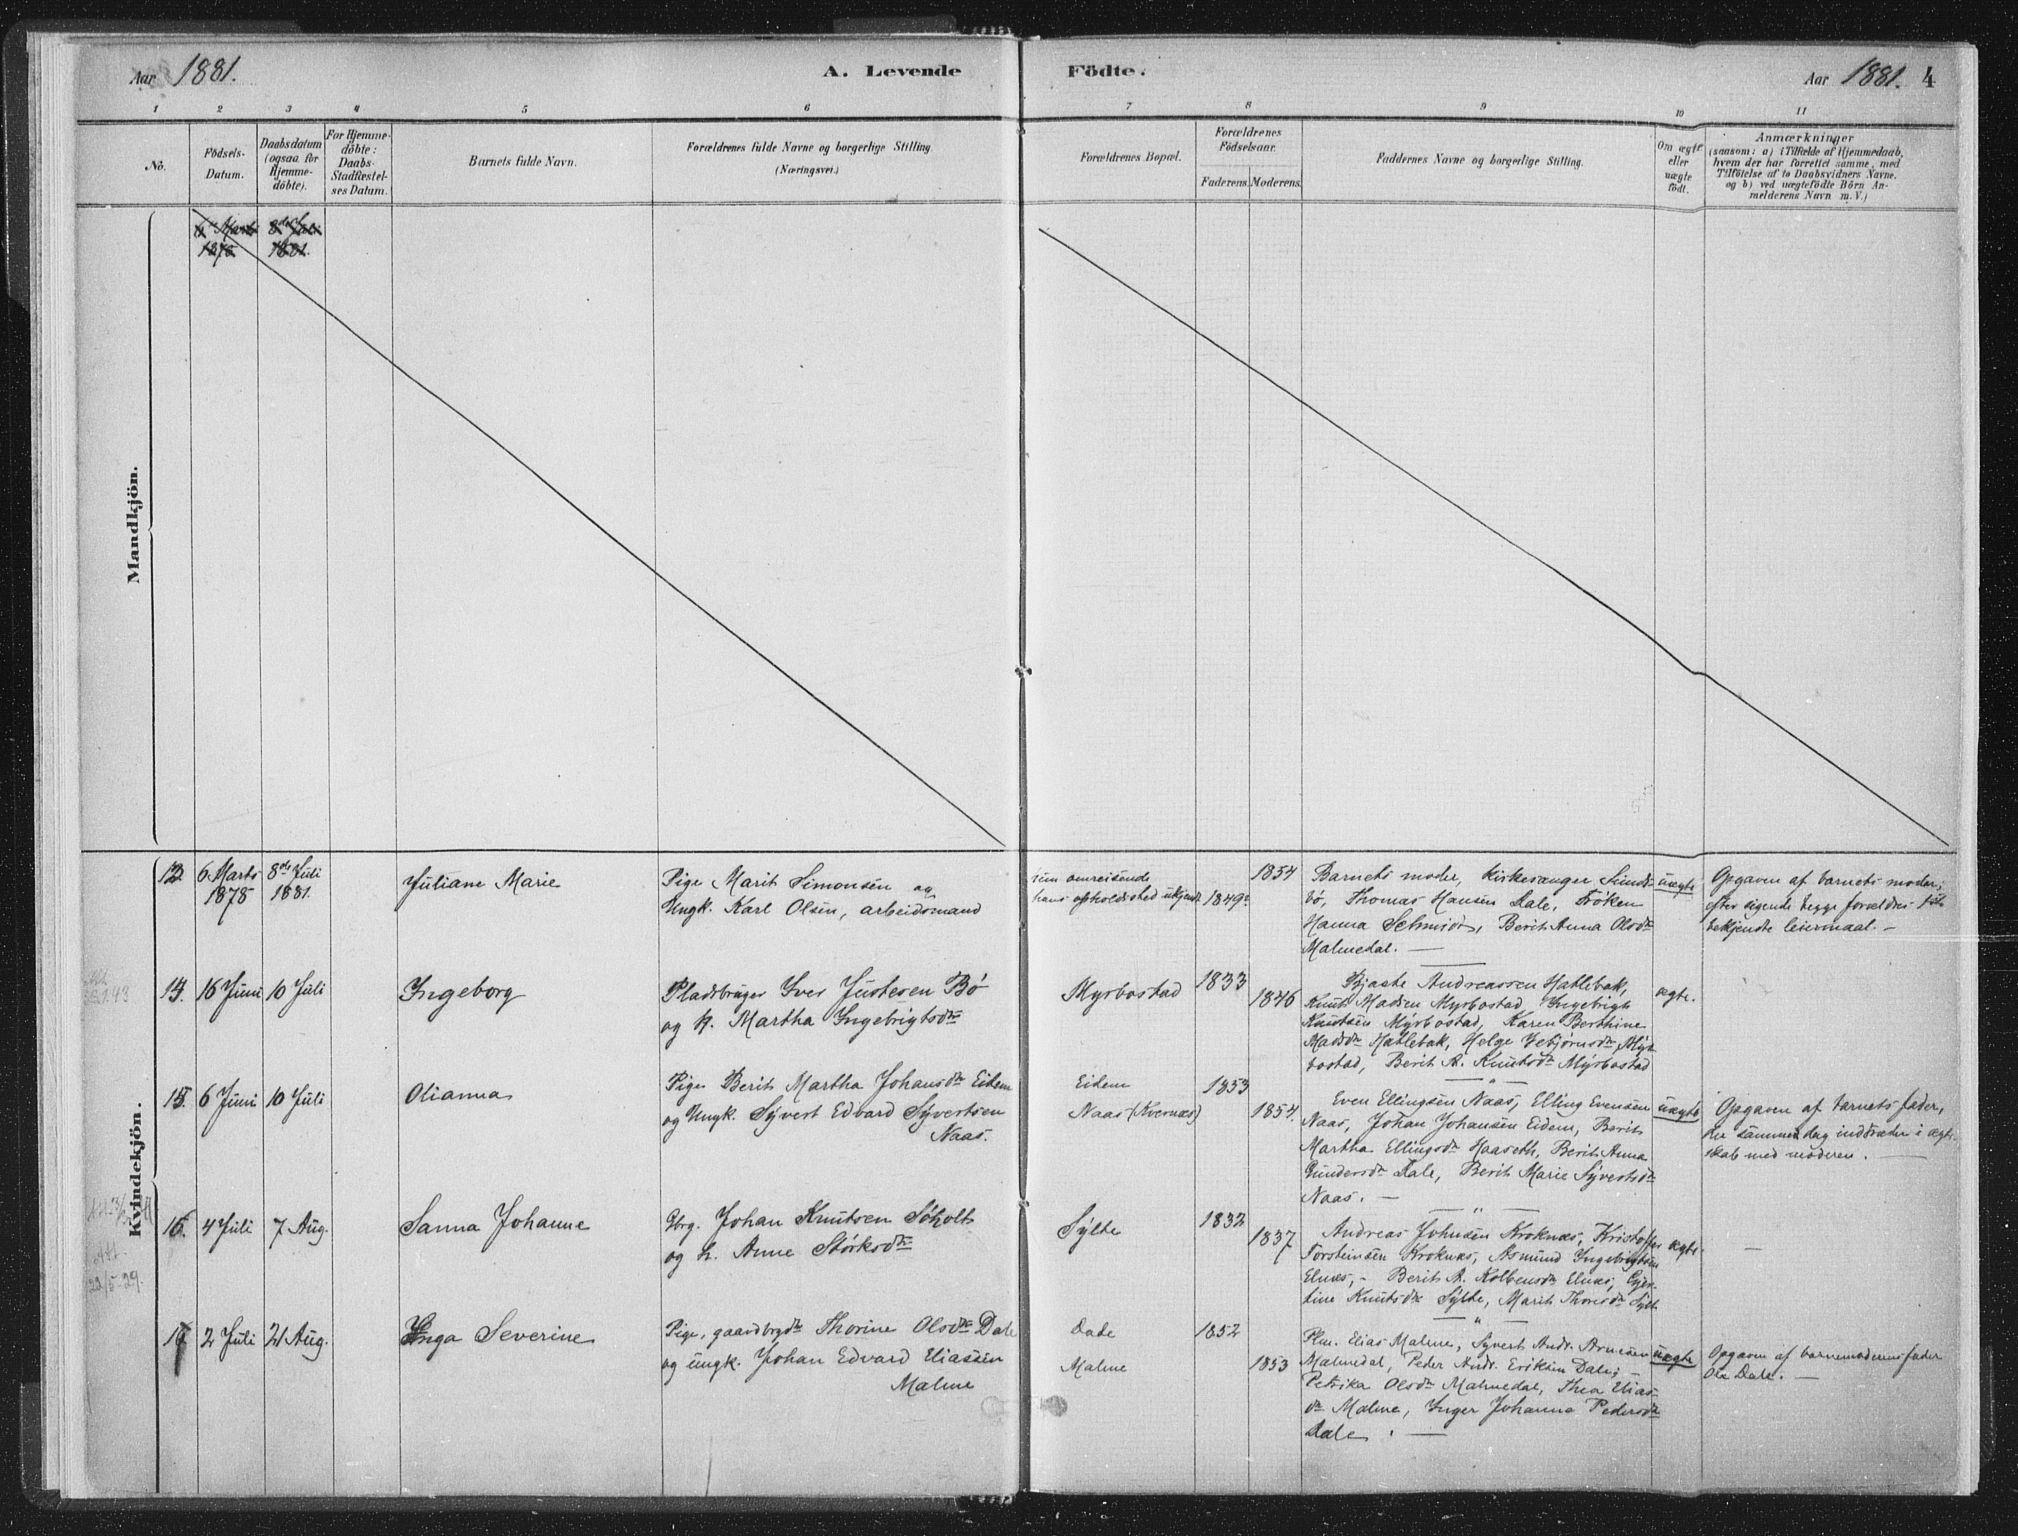 Aar 1881.
A. Levende Födte.
Aar 1881. 4
1 2 3 4 5 6 7 8 9 10 11
No.
Födsels-
Datum.
Daabsdatum
(ogsaa for
Hjemme-
döbte).
For Hjemme-
döbte:
Daabs-
Stadfæstel-
ses Datum.
Barnets fulde Navn.
Forældrenes fulde Navne og borgerlige Stilling.
(Næringsvei.)
Forældrenes Bopæl.
Forældrenes
Födselsaar.
Faderens. Moderens.
Faddernes Navne og borgerlige Stilling.
Om ægte
eller
uægte
födt.
Anmærkninger
(saasom: a) i Tilfælde af Hjemmedaab,
hvem der har forrettet samme, med
Tilföielse af to Daabsvidners Navne.
og b) ved uægtefödte Börn An-
melderens Navn m. V.)
Mandkjön.
6 Marts 8de Juli
1878 1881.
Kvindekjön.
6 Marts
1878
8de Juli
1881.
Juliane Marie
Pige Marit Simonsen og
Ungk. Karl Olsen, arbeidsmand
omreisende
hans opholdssted ukjendt
1849
1854
Barnets moder, Kirkesanger Sunds-
bö, Thomas Hansen Dale, Fröken
Hanna Schmidt, Berit Anna Olsdtr
Malmedal. —
uægte
Opgaven af barnets moder,
efter sigende begge forældres
bekjendte leiermaal. —
14. 16 Juni 10 Juli
Ingeborg
Pladsbruger Iver Justesen Bö
og h. Martha Ingebrigtsdtr
Myrbostad
1833
1846
Andreassen Hatlebak,
Knut Madsen Myrbostad, Ingebrigt
Knutsen Myrbostad, Karen Berthine
Madsdtr Hatlebak, Helge
bostad, Berit A. Knutsdtr Myrbostad
ægte.
15. 6 Juni 10 Juli
Olianna
Pige Berit Martha Johansdtr Eidem
og Ungk. Sivert Edvard Sivertsen
Naas.
Eidem
Naas (Kvernæs)
1853
1854.
Even Ellingsen Naas, Elling Evensen
Naas, Johan Johansen Eidem, Berit
Martha Ellingsdtr Haaseth, Berit Anna
Gundersdtr Dale, Berit Marie Sivertsdtr
Naas. —
uægte
Opgaven af barnets fader,
der samme dag indtræder i ægte-
skab med moderen. —
16. 4 Juli 7 Aug.
Sanna Johanne
Gbrg. Johan Knutsen Söholt
og h. Anne Störksdtr
Sylte
1832
1837
Andreas Johnsen Kroknæs, Kristoffer
Torsteinsen Kroknæs, Asmund Ingebrigtsen
Elnæs, - Berit A. Kolbensdtr Elnæs,
Knutsdtr Sylte, Marit Thoresdtr Sylte
ægte
—
22/5-29.
2 Juli 21 Aug.
Inga Severine
Pige, gaardbrgdtr Thorine Olsdtr Dale
og ungk. Johan Edvard Eliassen
Malme
Dale
Malme
1852
1853
Elias Malme, Syvert Andr. Arnesen
Malmedal, Peder Andr. Eriksen Dale; —
Petrika Olsdtr Malmedal, Thea Elias-
dtr Malme, Inger Johanna Pedersdtr
Dale. —
uægte
Opgaven af barnemoderens fader
Ole Dale. —